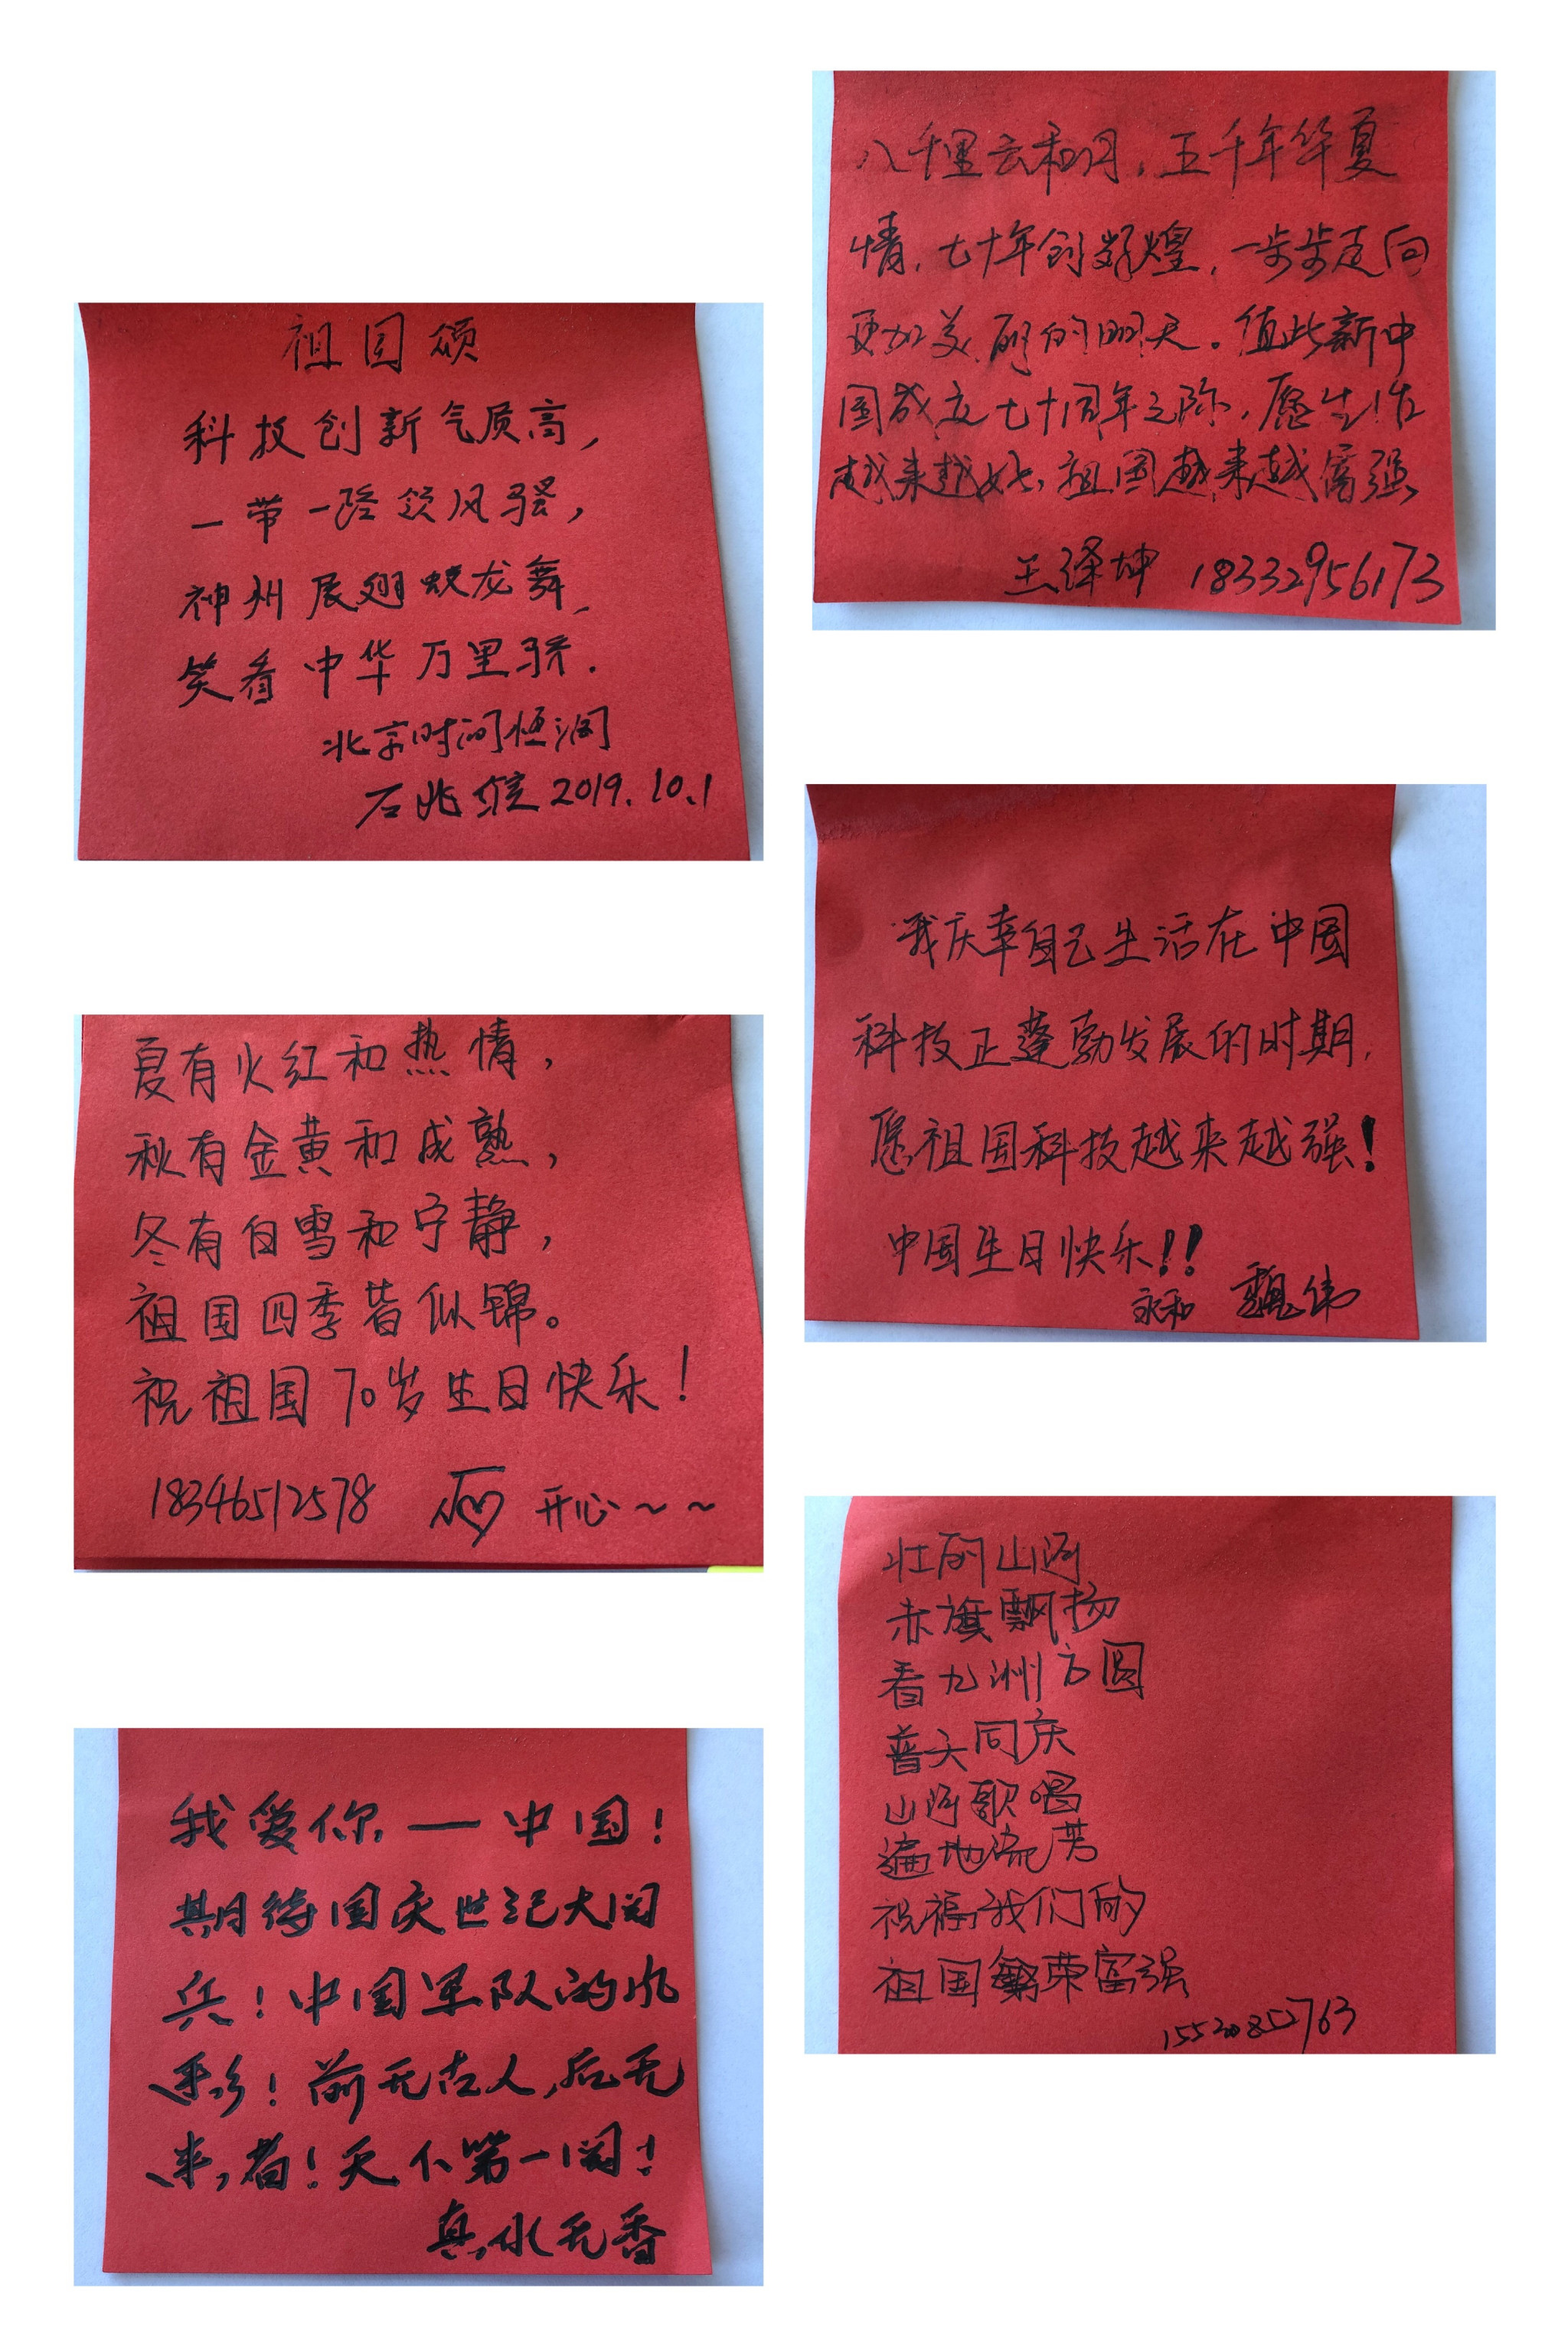 祖国颂
科技创新气质高,
一带一路领风骚,
神州展翅蛟龙舞,
笑看中华万里骄.
北京时间恒润
石兆 2019.10.1
夏有火红和热情,
秋有金黄和成熟,
冬有白雪和宁静,
祖国四季皆似锦。
祝祖国70岁生日快乐!
18346512578 开心~~
我爱你—中国!
期待国庆世纪大阅
兵!中国军队的风
采!前无古人,后无
来者!天下第一阅!
真水无香
八千里云和月,五千年华夏
情,七十年创辉煌,一步步走向
更加美丽的明天。值此新中
国成立七十周年之际,愿生活
越来越好,祖国越来越富强
王泽坤 18332956173
我庆幸自己生活在中国
科技正蓬勃发展的时期,
愿祖国科技越来越强!
中国生日快乐!!
永和 魏伟
壮丽山河
赤旗飘扬
看九洲方圆
普天同庆
山河歌唱
遍地流芳
祝福我们的
祖国繁荣富强
15520852763